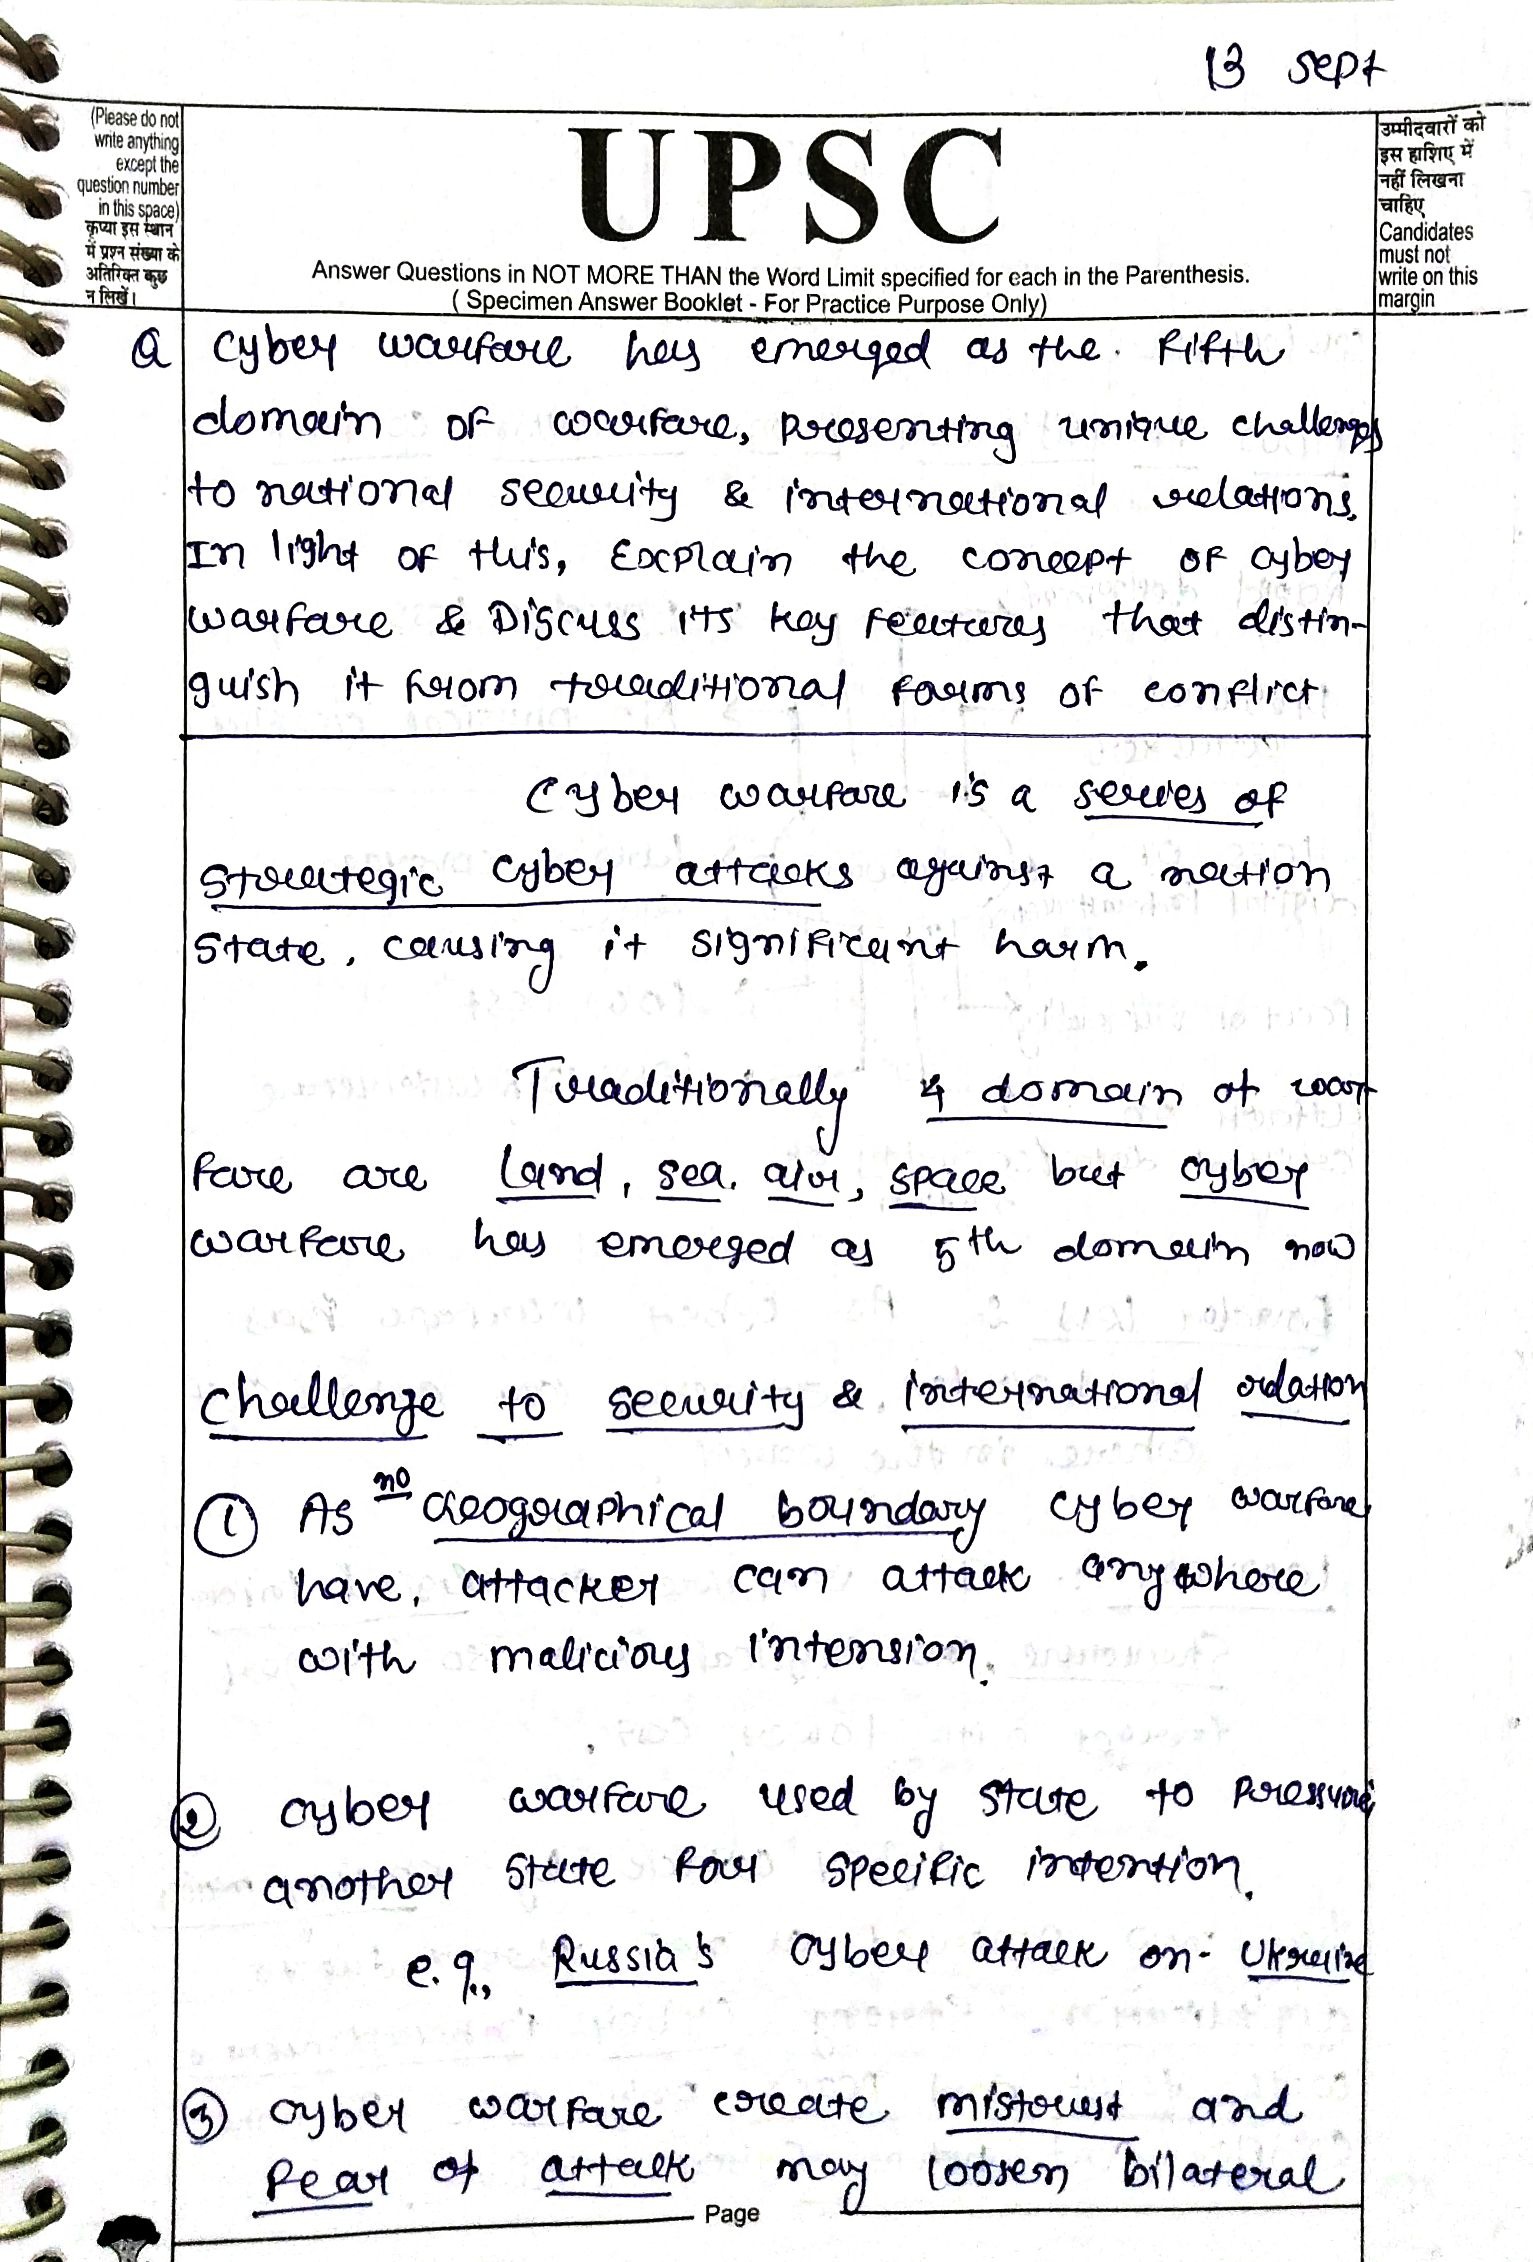 13 Sept
(Please do not
write anything
except the
question number
in this space)
कृप्या इस स्थान
में प्रश्न संख्या के
अतिरिक्त कुछ
न लिखें।
UPSC
Answer Questions in NOT MORE THAN the Word Limit specified for each in the Parenthesis.
( Specimen Answer Booklet - For Practice Purpose Only)
उम्मीदवारों को
इस हाशिए में
नहीं लिखना
चाहिए
Candidates
must not
write on this
margin
Q Cyber warfare has emerged as the fifth
domain of warfare, presenting unique challenges
to national security & international relations.
In light of this, Explain the concept of cyber
warfare & Discuss its key features that distin-
guish it from traditional forms of conflict
Cyber warfare is a series of
strategic cyber attacks against a nation
state, causing it significant harm.
Traditionally 4 domain of war
fare are land, sea, air, space but cyber
warfare has emerged as 5th domain now
Challenge to security & international relation
1 As no Geographical boundary cyber warfare
have, attacker can attack anywhere
with malicious intension.
2 cyber warfare used by state to pressure
another state for specific intention.
e.g., Russia's cyber attack on - Ukraine
3 cyber warfare create mistrust and
fear of attack may loosen bilateral
Page